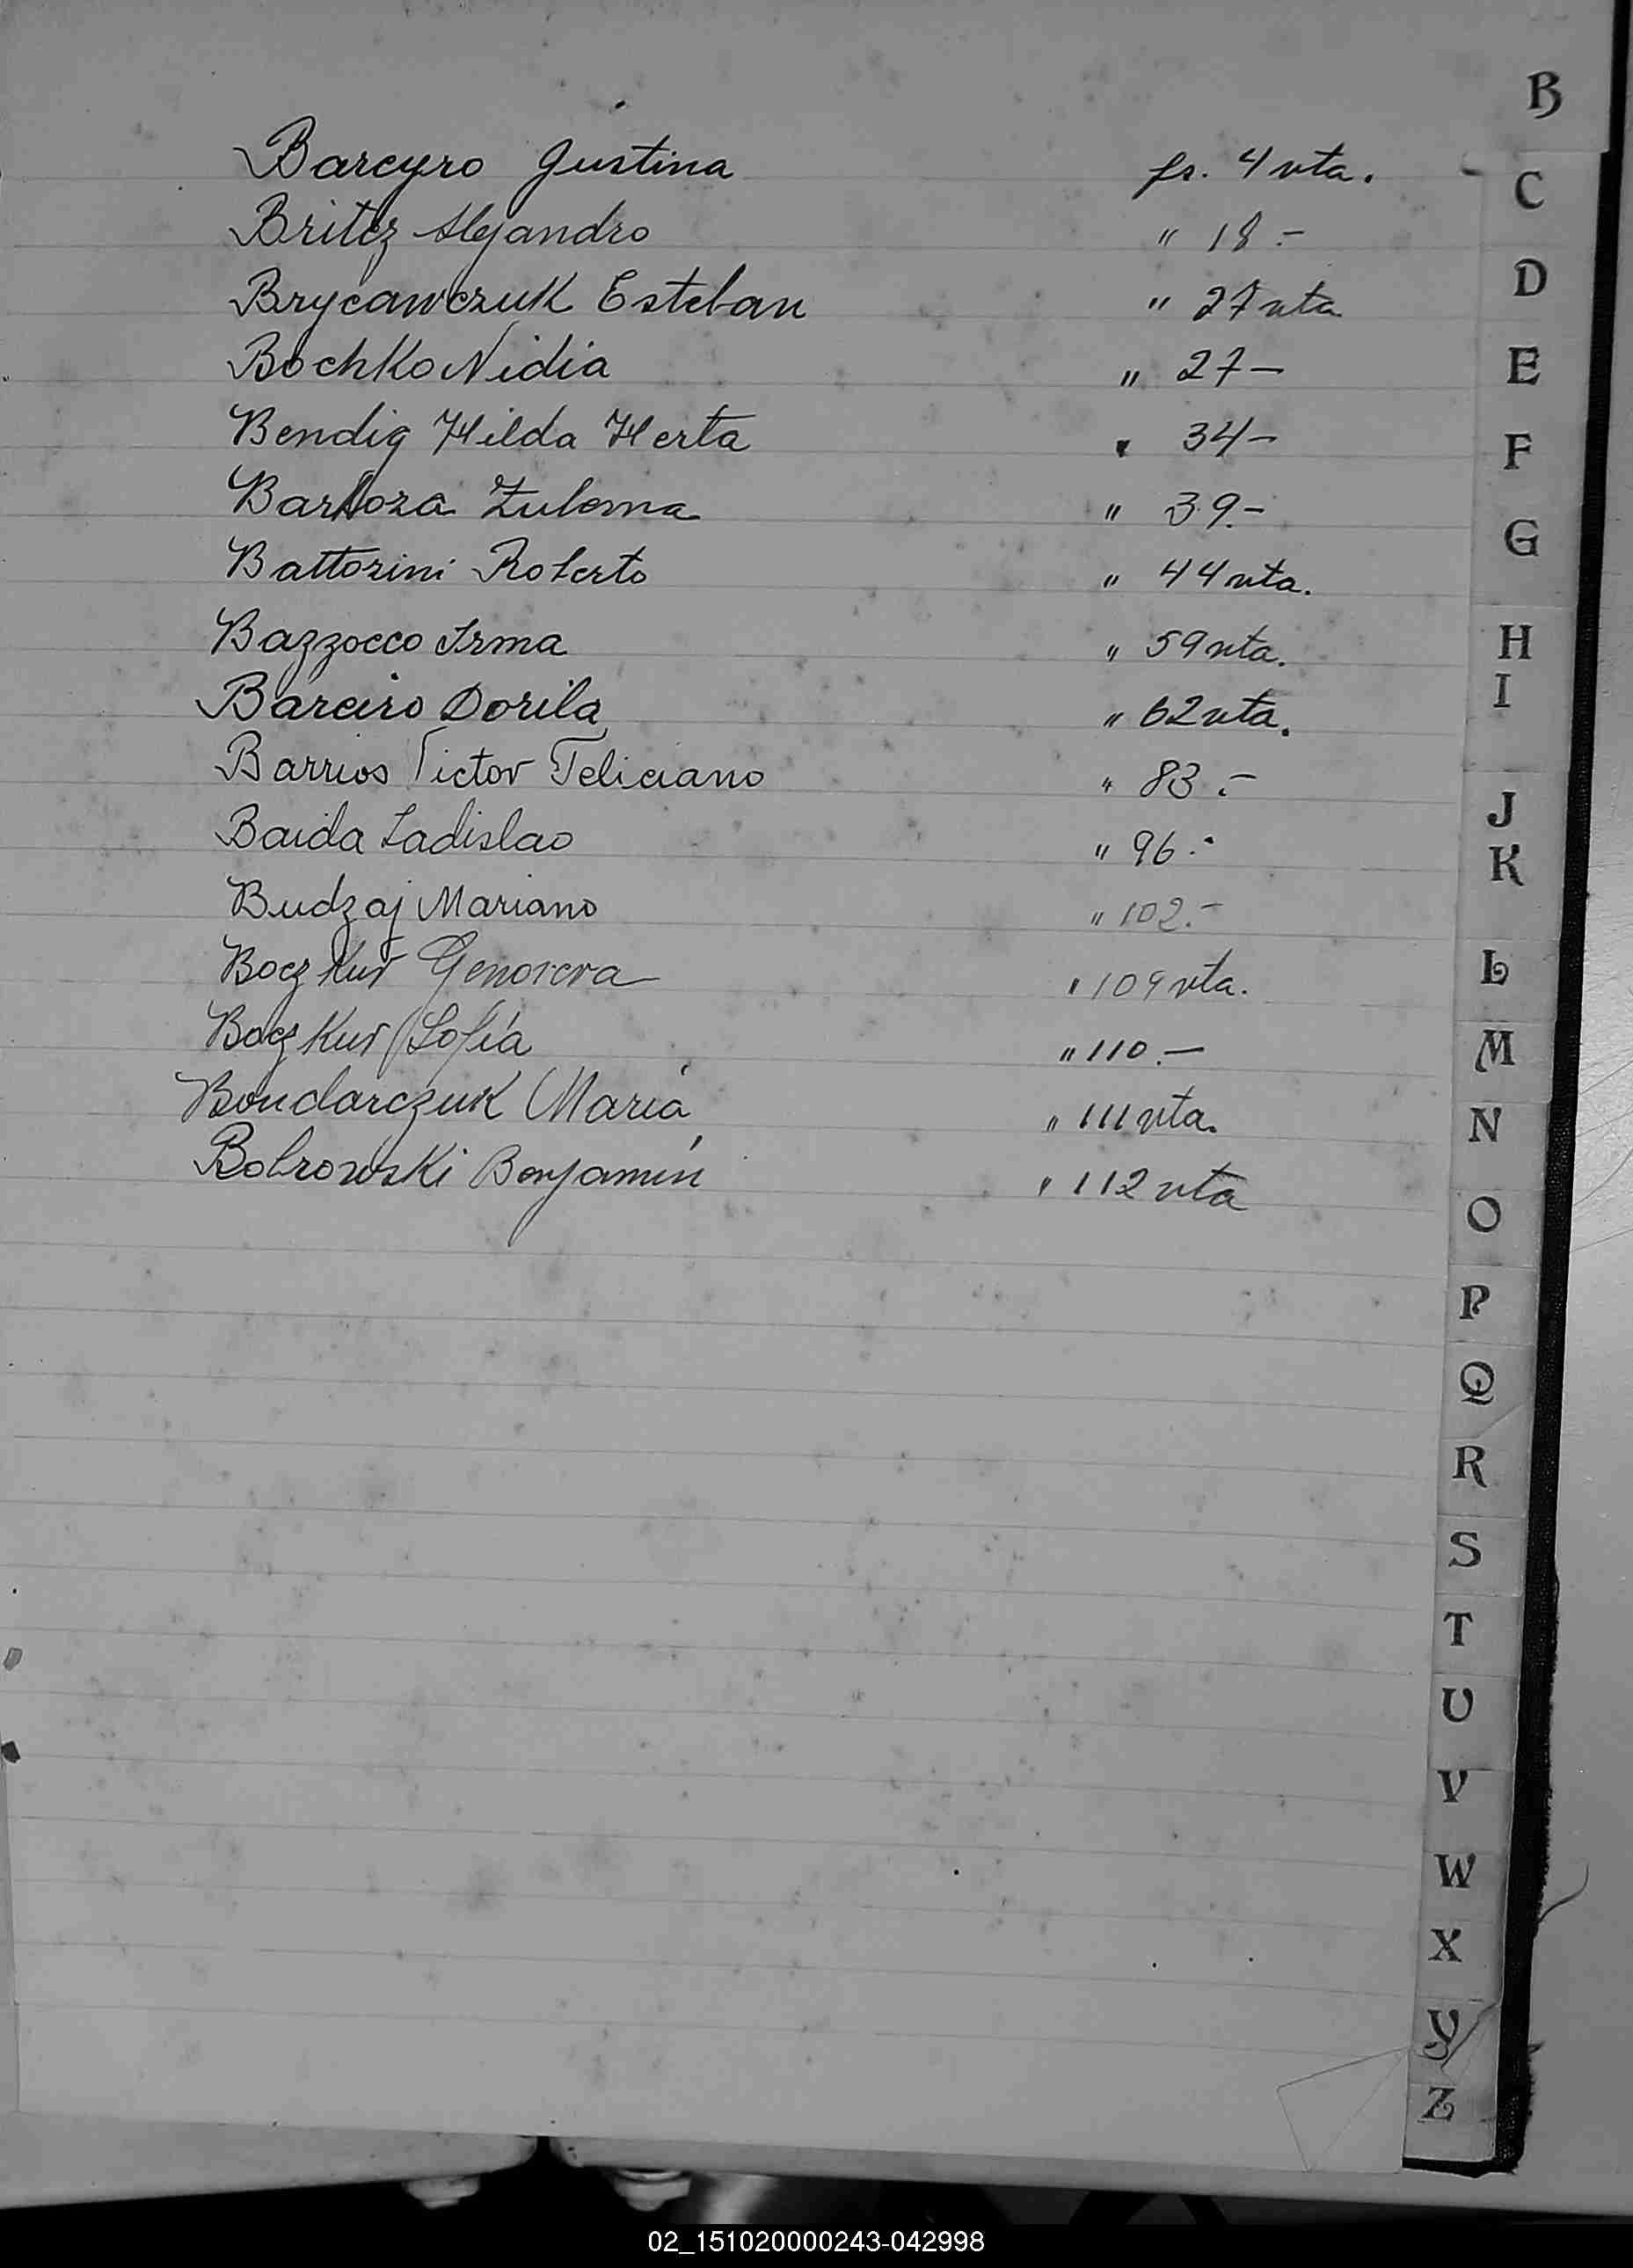 B
Bareyro Justina fs. 4 vta.
Britez Alejandro " 18.-
Brycawczuk Esteban " 27 vta
Bochko Nidia " 27-
Bendig Hilda Herta " 34-
Barboza Zulema " 39.-
Battorini Roberto " 44 vta.
Bazzocco Irma " 59 vta.
Bareiro Dorila " 62 vta.
Barrios Victor Feliciano " 83.-
Baida Ladislao " 96.-
Budzaj Mariano " 102.-
Boczkur Genoveva " 109 vta.
Boczkur Sofía " 110.-
Bondarczuk María " 111 vta.
Bobrowski Benjamín " 112 vta
C
D
E
F
G
H
I
J
K
L
M
N
O
P
Q
R
S
T
U
V
W
X
Y
Z
02_151020000243-042998